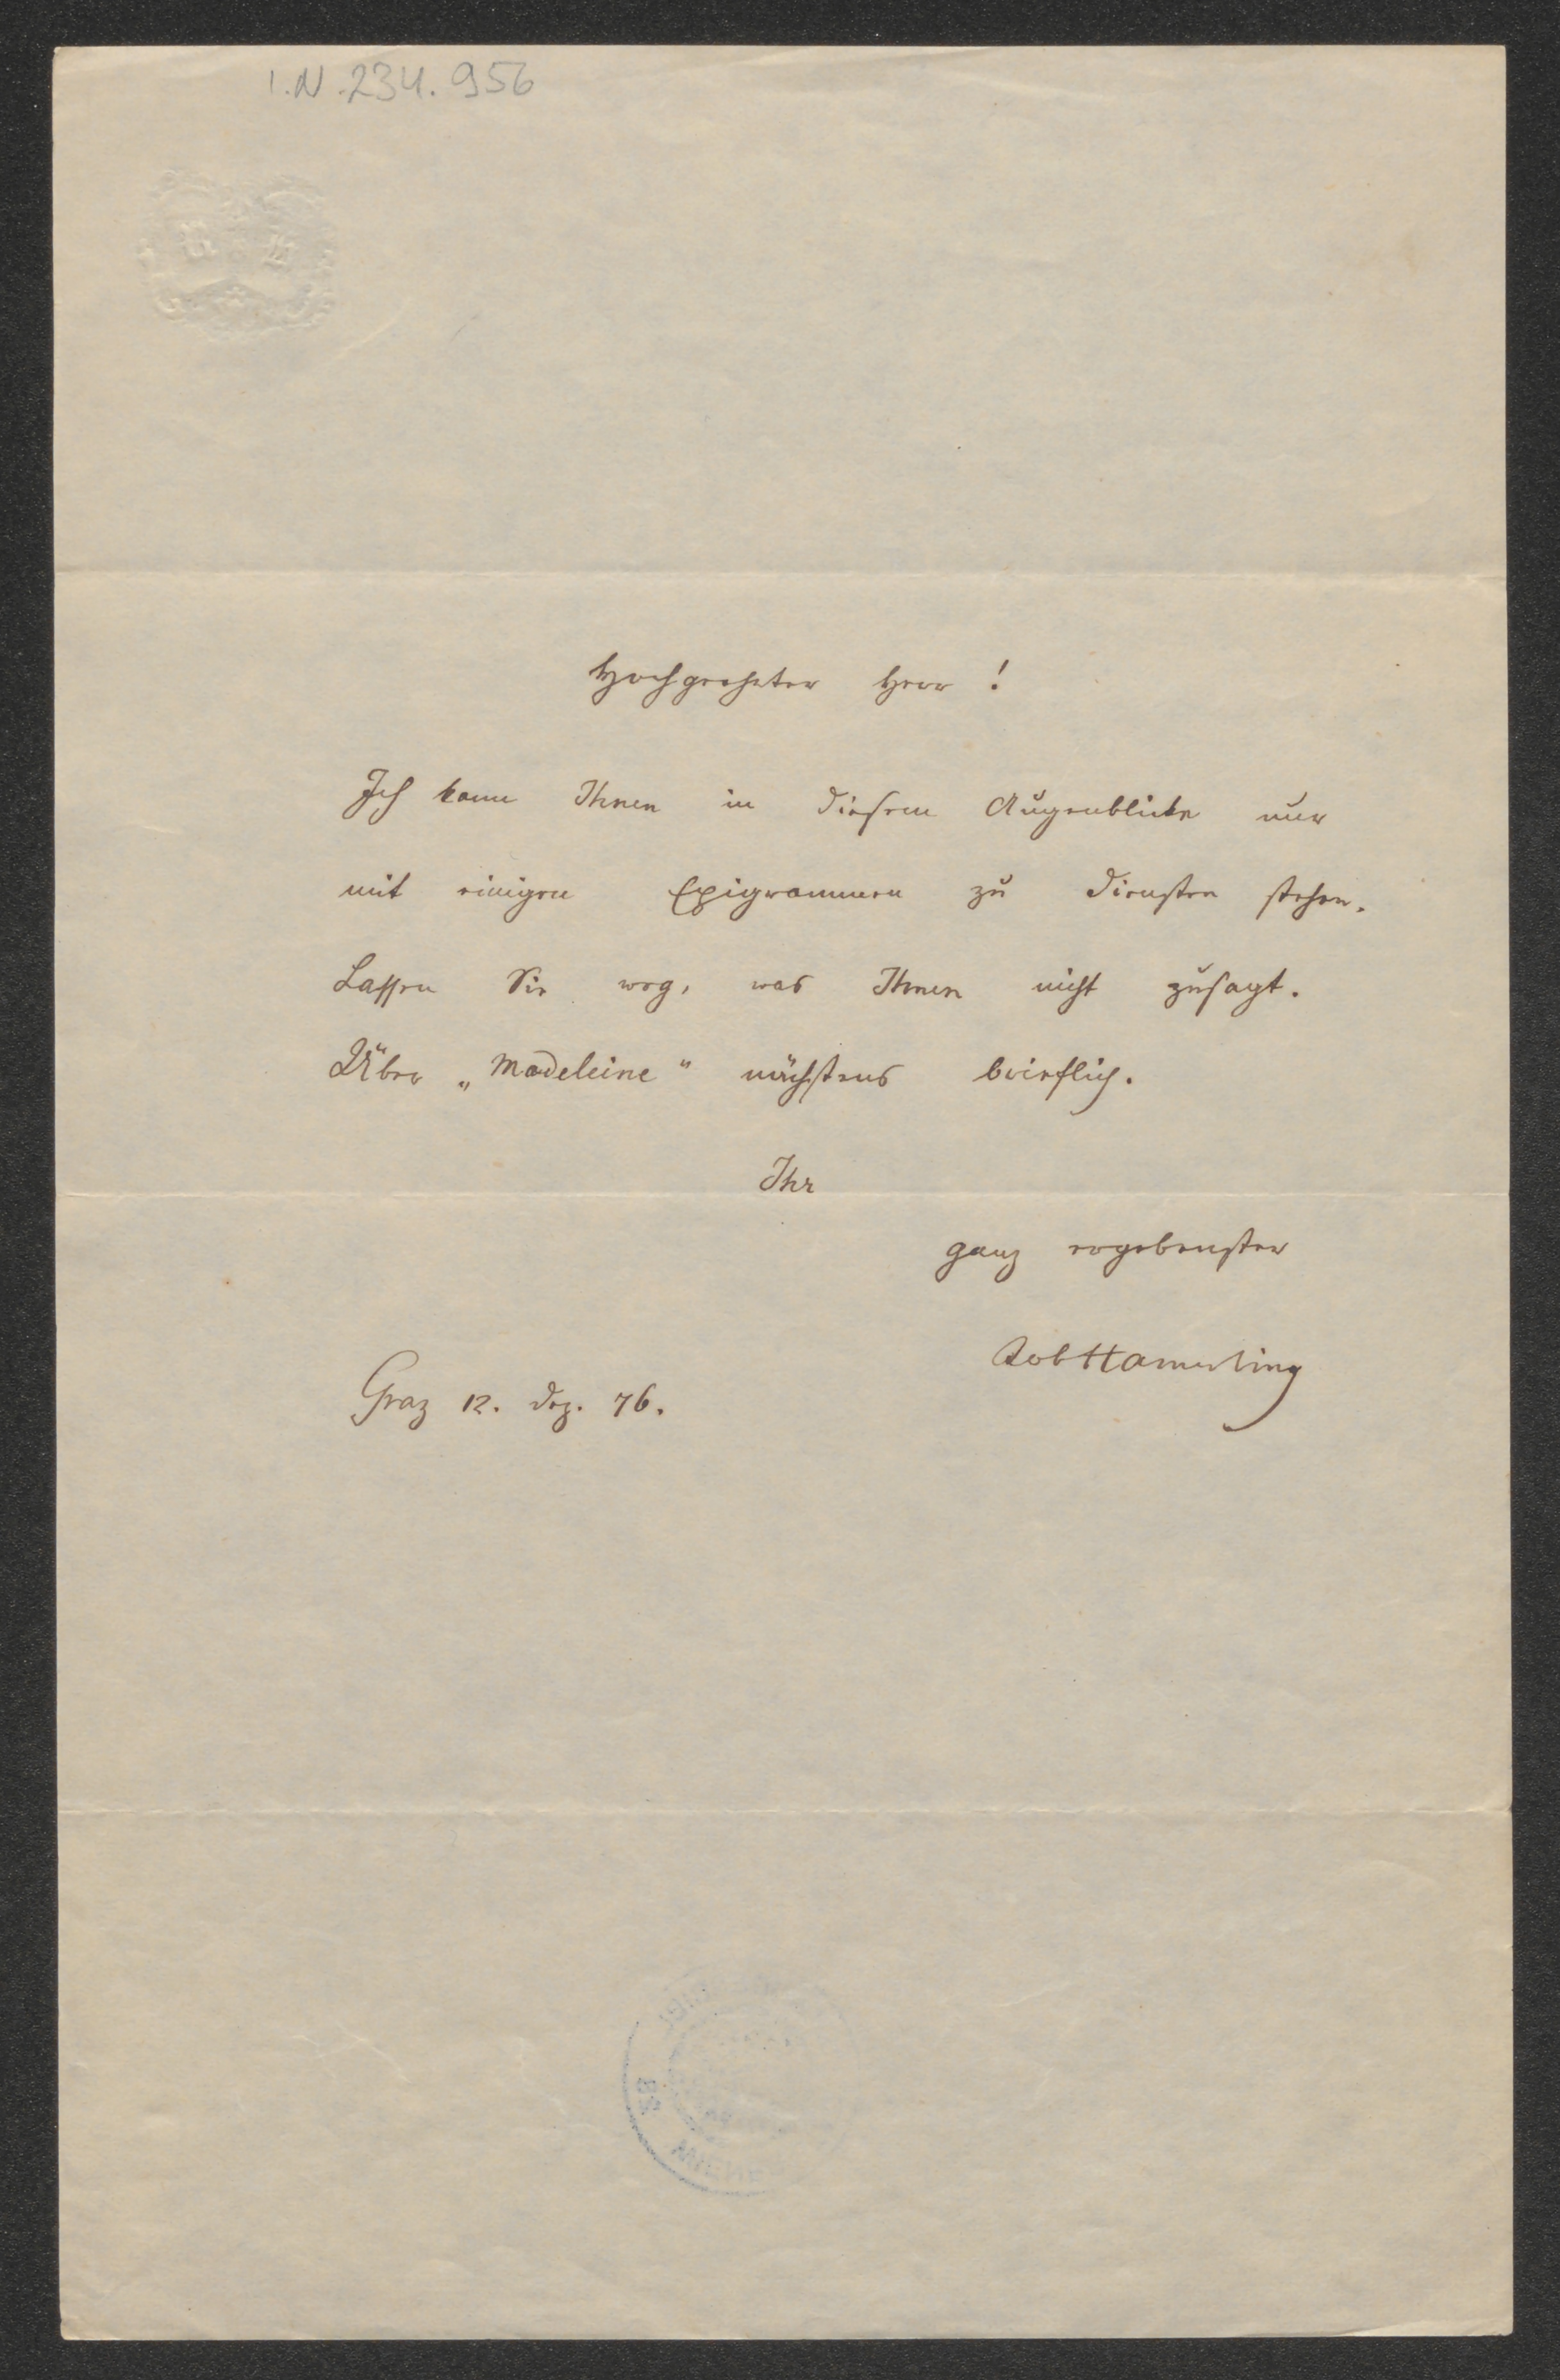 I.N.234.956
Hochgeehrter Herr!
Ich kann Ihnen in diesem Augenblicke nur
mit einigen Epigrammen zu Diensten stehen.
Lassen Sie weg, was Ihnen nicht zusagt.
Über „Madeleine“ nächstens brieflich.
Ihr
ganz ergebenster
RobHamerling
Graz 12. Dez. 76.